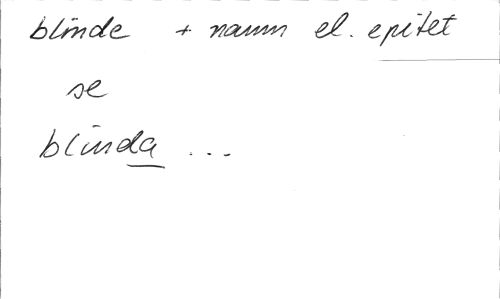 blinde + namn el. epitet
se
blinda ...